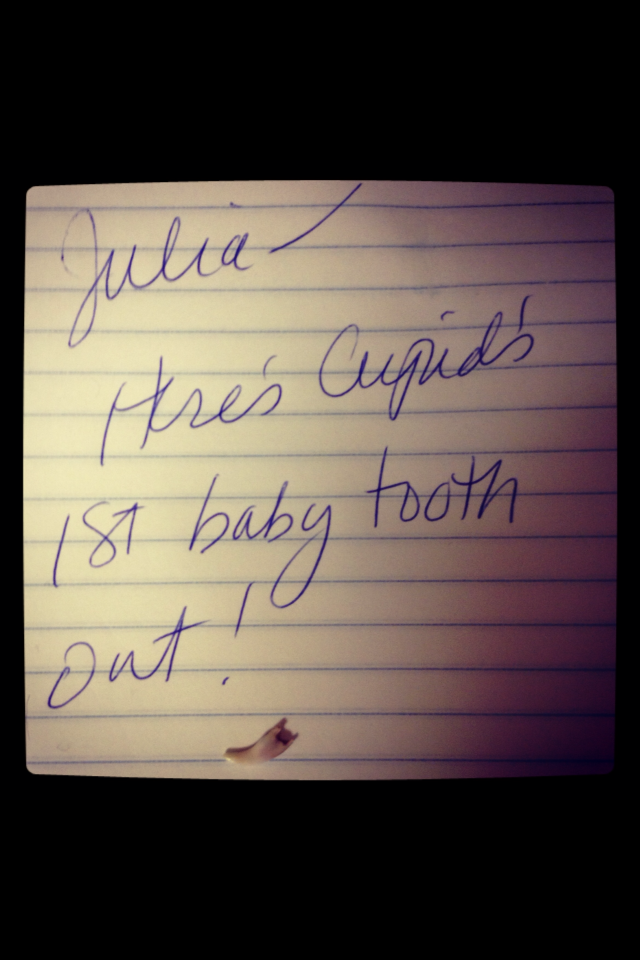 Julia —
Here's Cupid's
1st baby tooth
out!